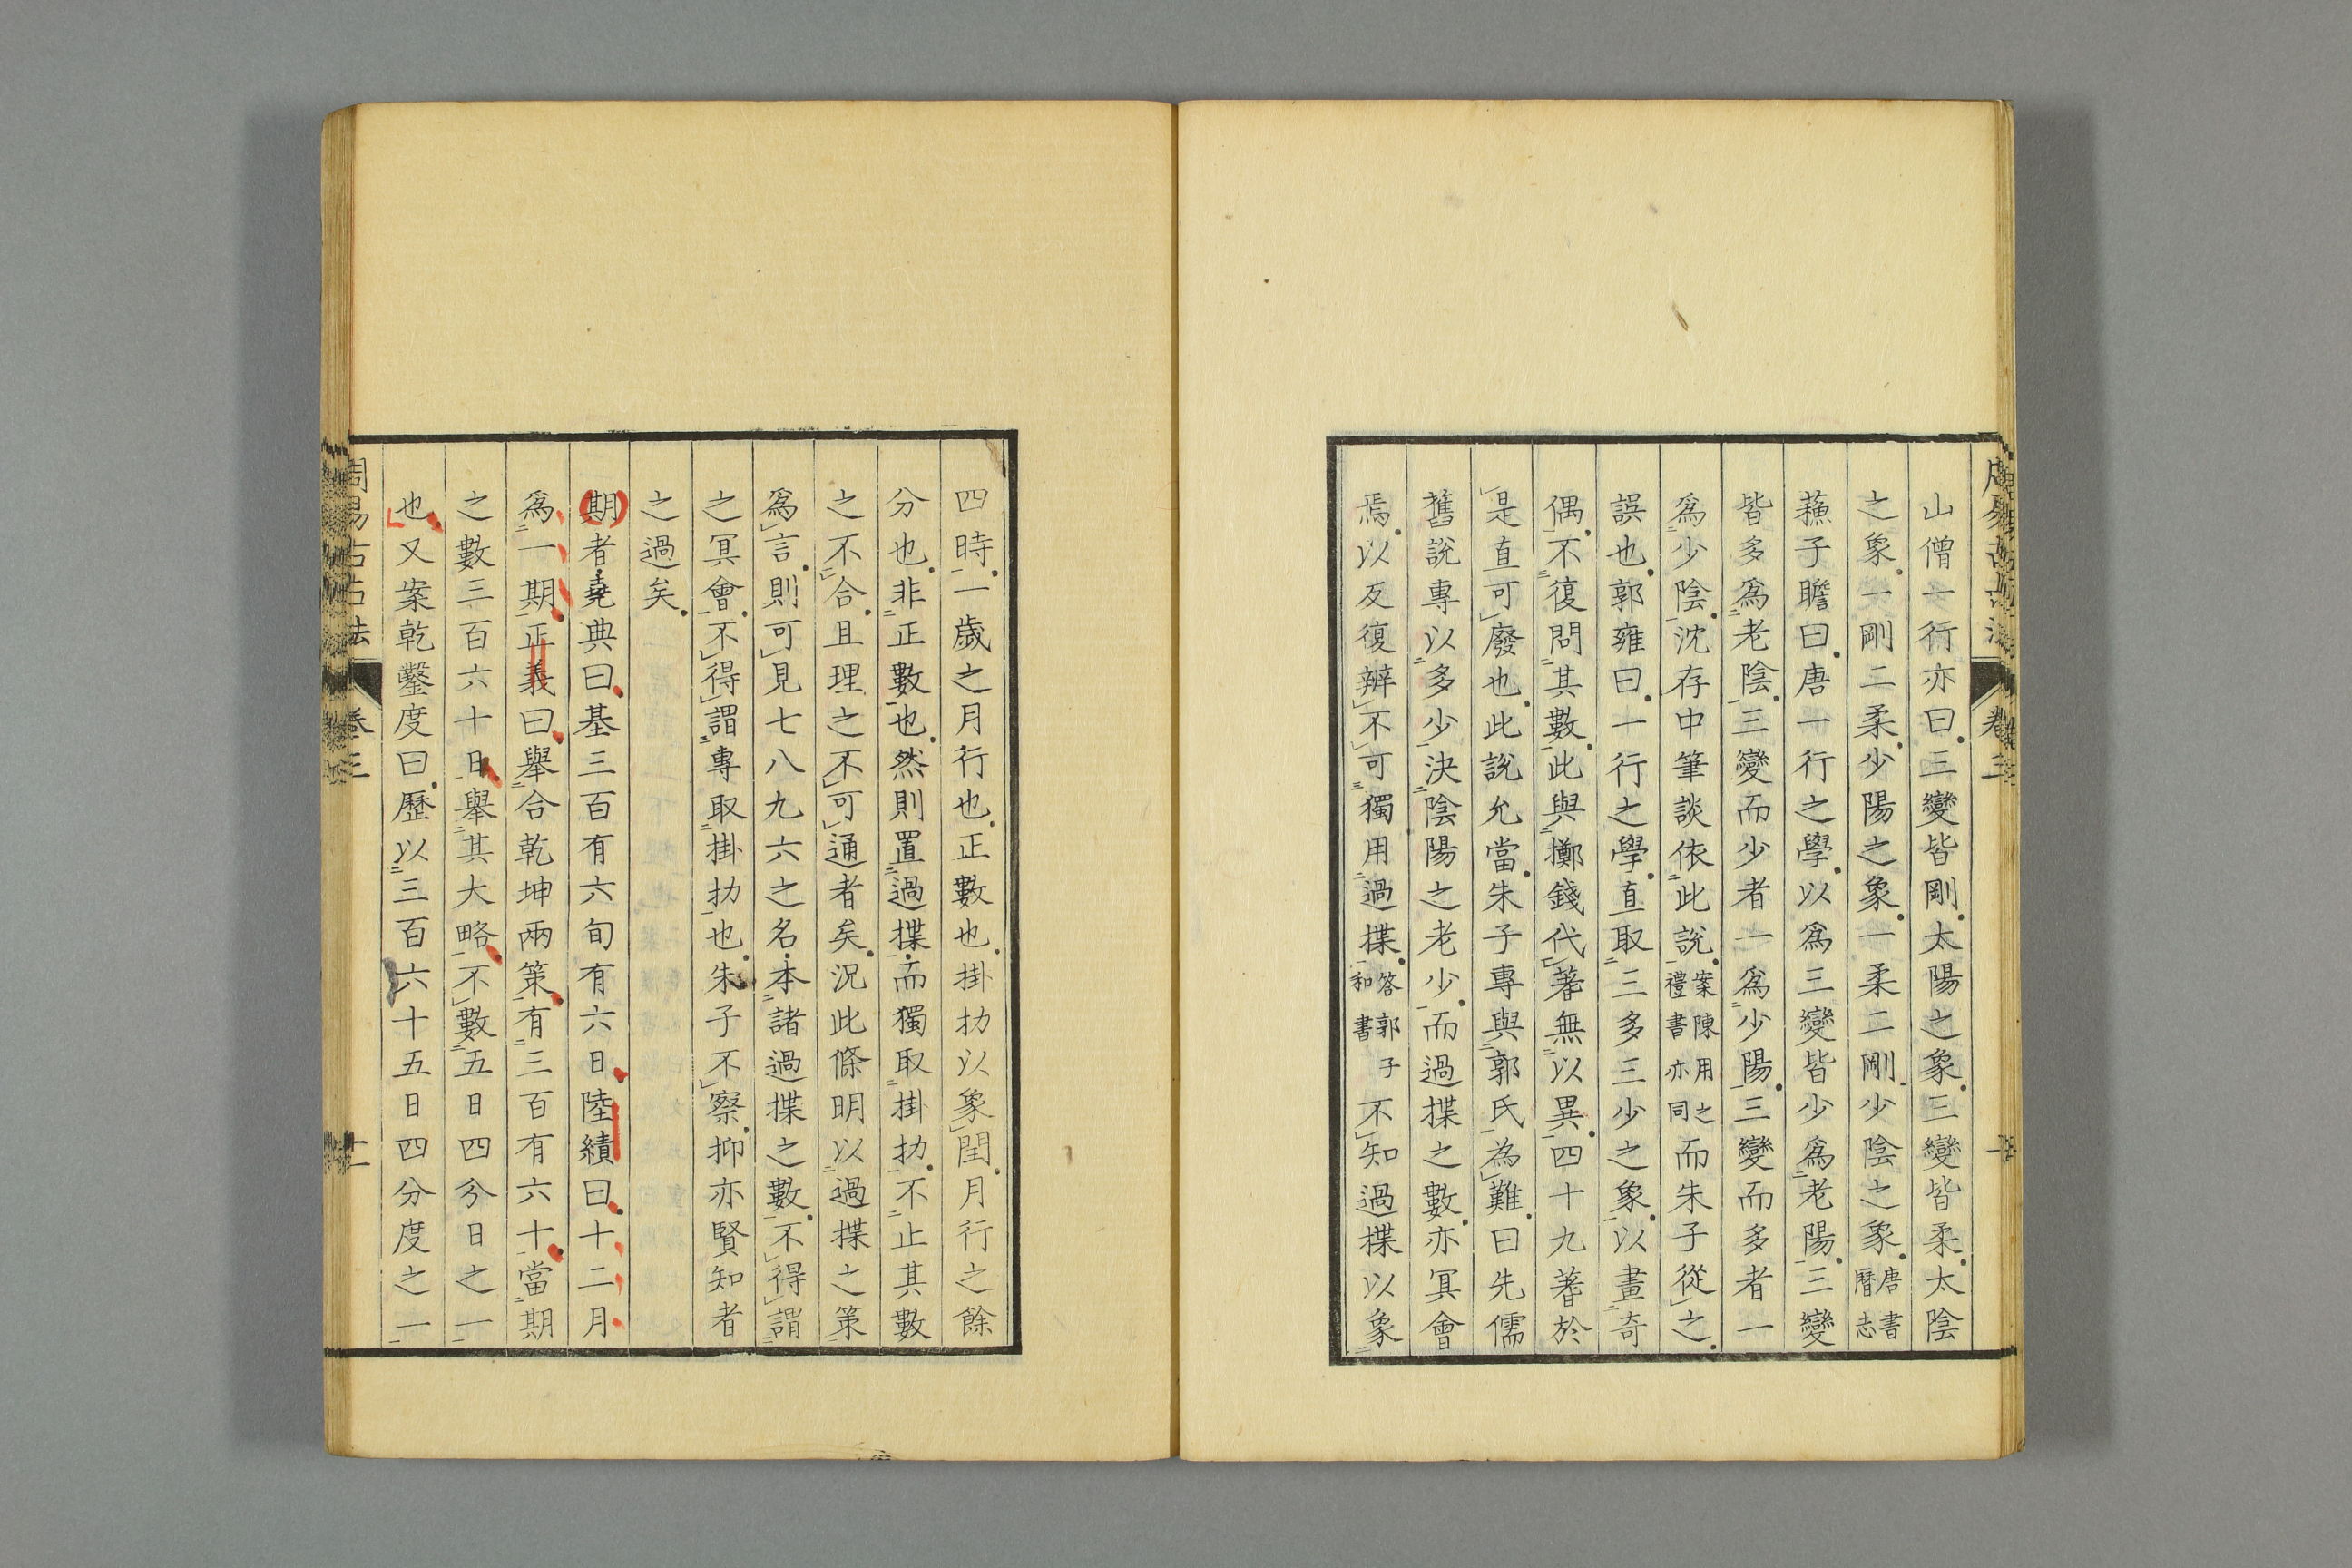 山僧一行亦曰三變皆剛太陽之象三變皆柔太陰
之象一剛二柔少陽之象一柔二剛少陰之象唐書曆志
蘓子瞻曰唐一行之學以爲三變皆少爲老陽三變
皆多爲老陰三變而少者一爲少陽三變而多者一
爲少陰沈存中筆談依此說案陳用之禮書亦同而朱子從之
誤也郭雍曰一行之學直取三多三少之象以畫奇
偶不復問其數此與擲錢代蓍無以異四十九蓍於
是直可廢也此說允當朱子專與郭氏為難曰先儒
舊說專以多少決陰陽之老少而過揲之數亦冥會
焉以反復辨不可獨用過揲答郭子和書不知過揲以象
四時一歲之月行也正數也掛扐以象閏月行之餘
分也非正數也然則置過揲而獨取掛扐不止其數
之不合且理之不可通者矣況此條明以過揲之策
爲言則可見七八九六之名本諸過揲之數不得謂
之冥會不得謂專取掛扐也朱子不察抑亦賢知者
之過矣
期者堯典曰基三百有六旬有六日陸績曰十二月
爲一期正義曰舉合乾坤兩策有三百有六十當期
之數三百六十日舉其大略不數五日四分日之一
也又案乾鑿度曰歷以三百六十五日四分度之一
周易古占法 卷三 十一